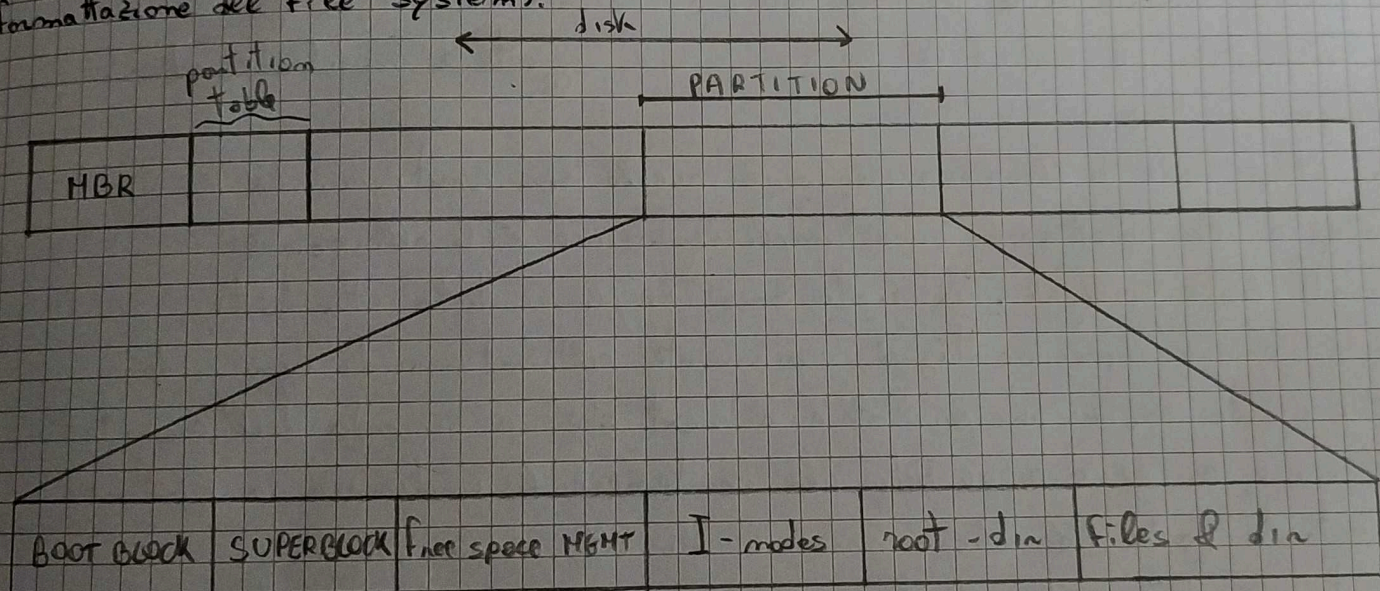 formattazione del file system).
disk
partition
table
PARTITION
MBR
BOOT BLOCK SUPERBLOCK free space MGMT I-nodes root-dir files & dir